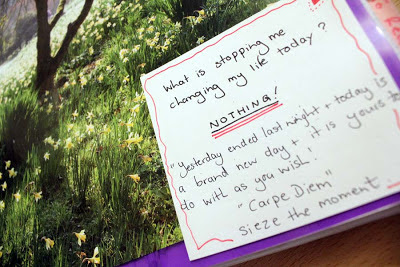 what is stopping me
changing my life today?
NOTHING!
"Yesterday ended last night + today is
a brand new day + it is yours to
do with as you wish!
"Carpe Diem"
sieze the moment.